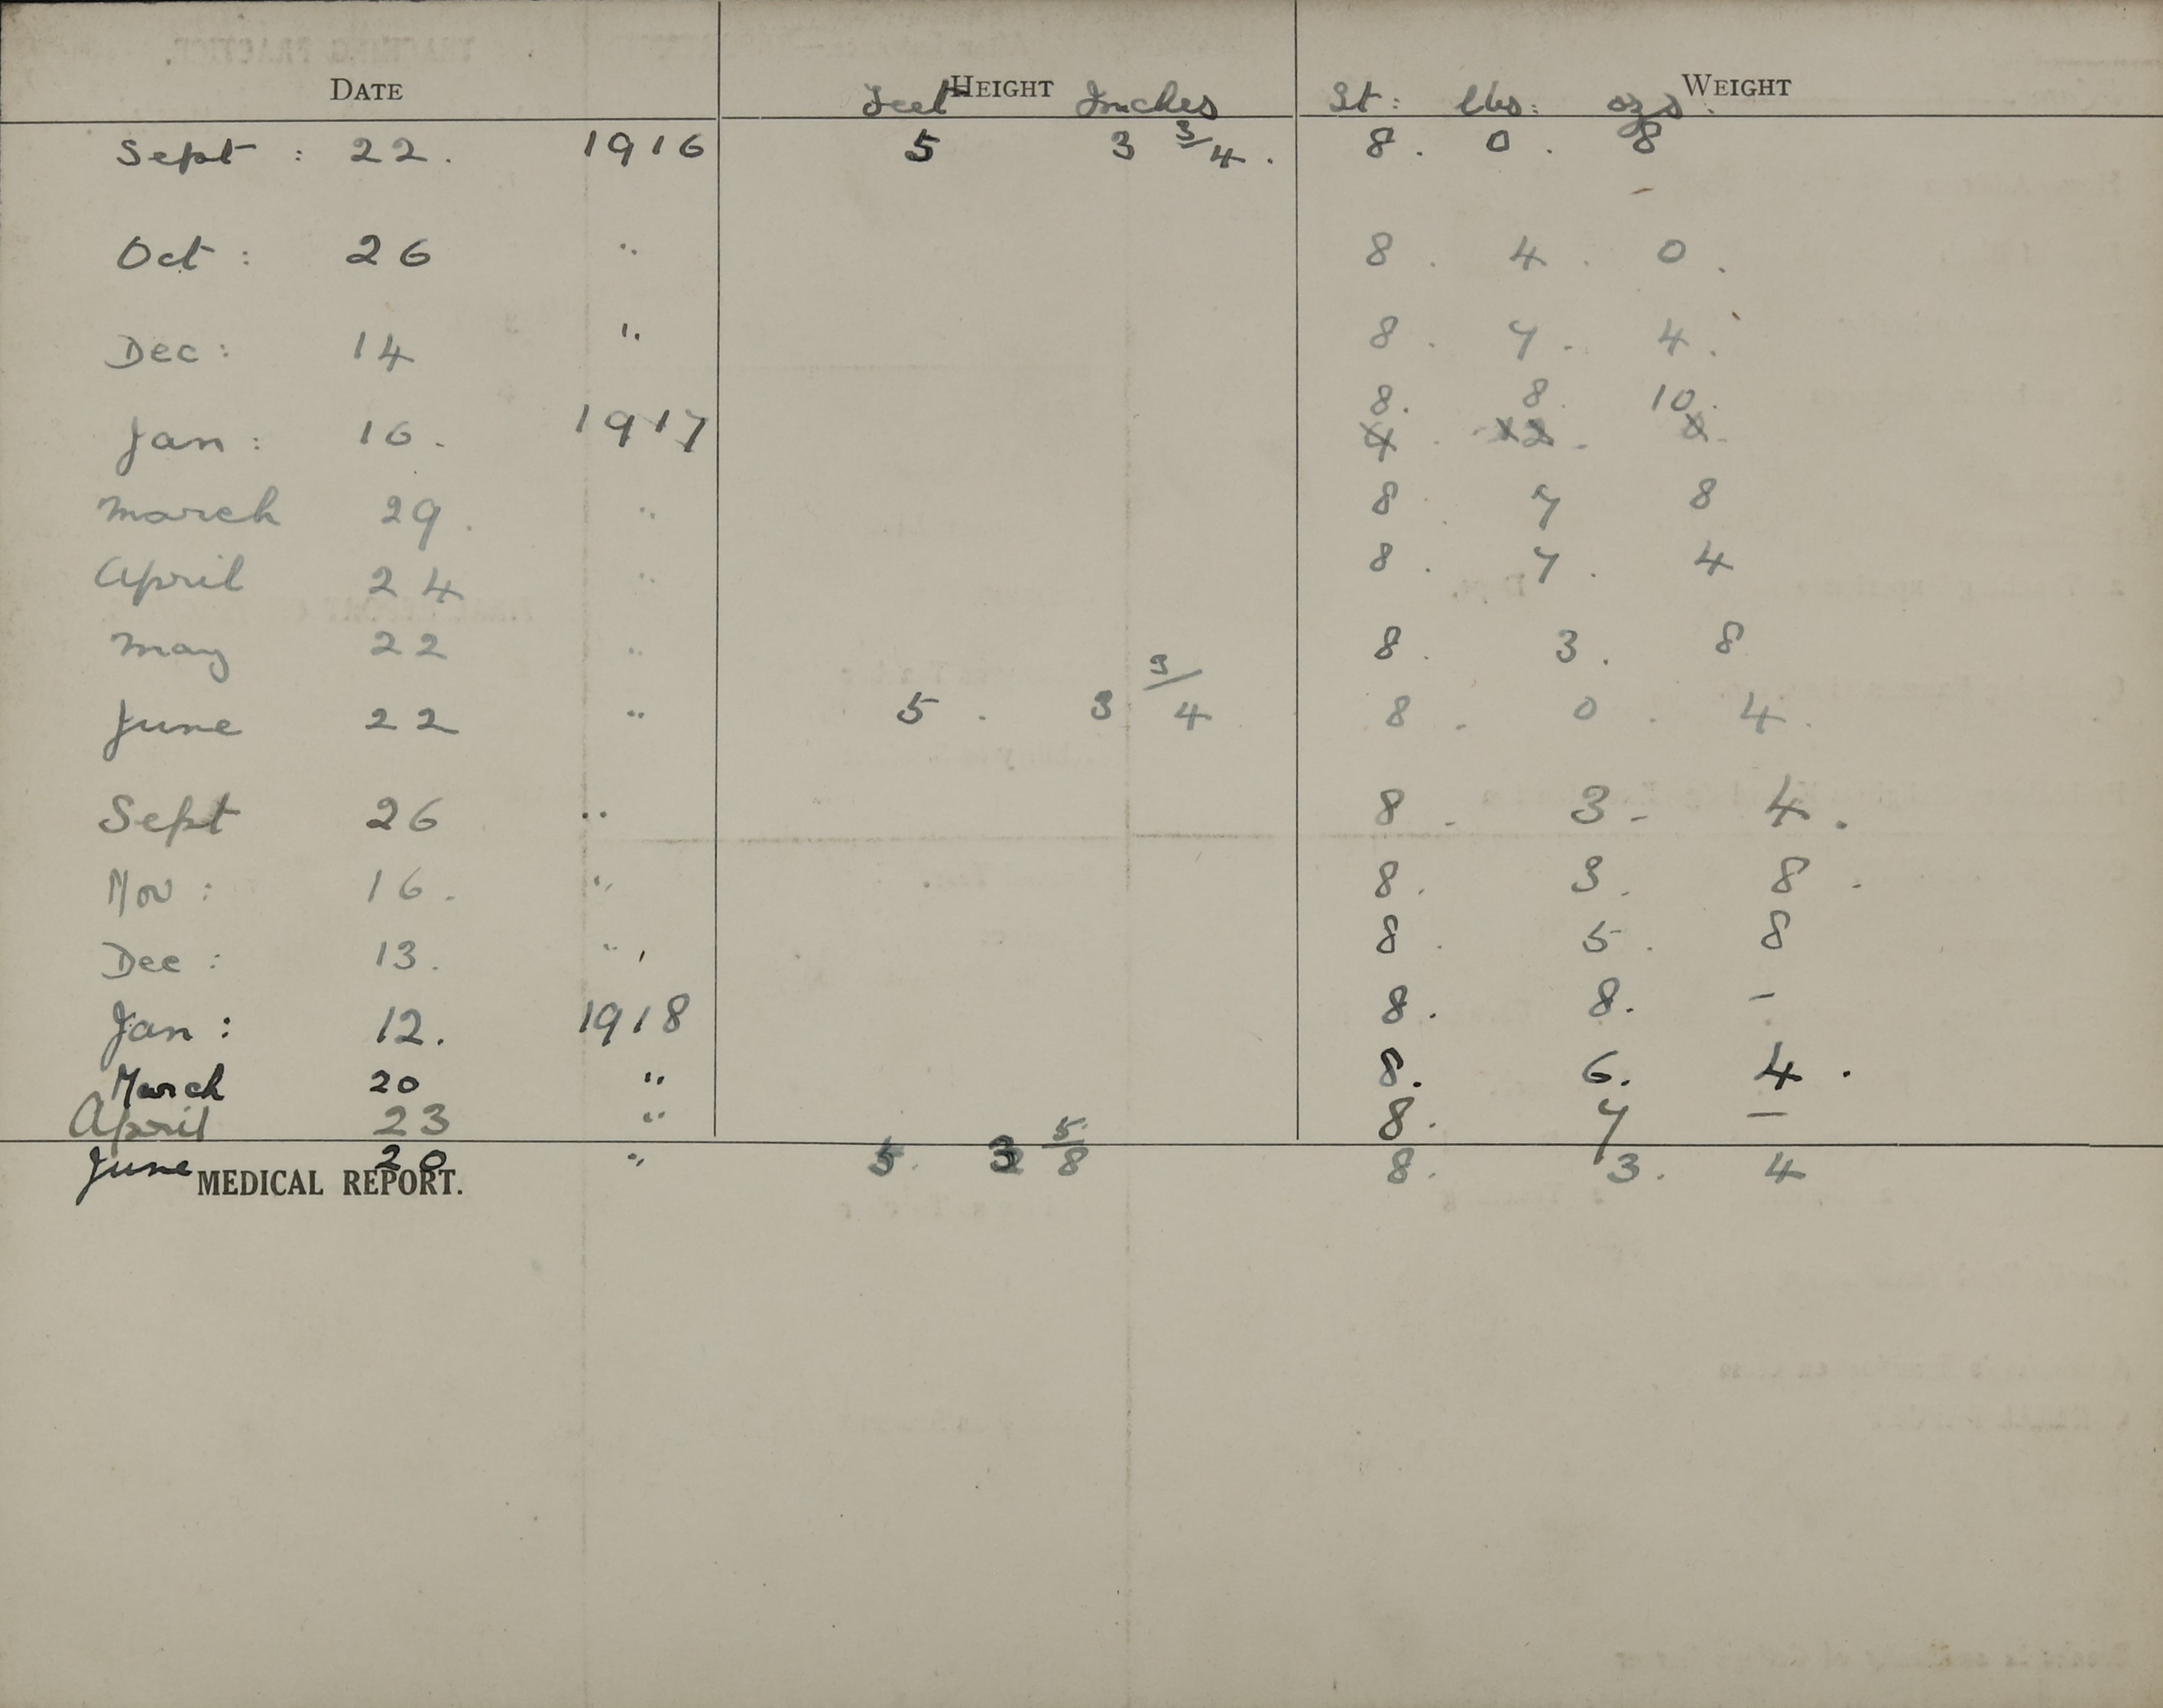 DATE HEIGHT WEIGHT
Feet Inches St: lbs: ozs.
Sept : 22. 1916 5 3 3/4. 8. 0. 8
Oct : 26 " 8. 4. 0.
Dec : 14 " 8. 7. 4.
8. 8. 10.
Jan : 16. 1917
March 29. " 8. 7 8
April 24 " 8. 7. 4
May 22 " 8. 3. 8
June 22 " 5. 3 3/4 8. 0. 4.
Sept 26 " 8. 3. 4.
Nov : 16. " 8. 3. 8.
Dec : 13. " 8. 5. 8
Jan : 12. 1918 8. 8. –
March 20 " 8. 6. 4.
April 23 " 8. 7 –
June 20 " 5. 3 5/8 8. 3. 4
MEDICAL REPORT.